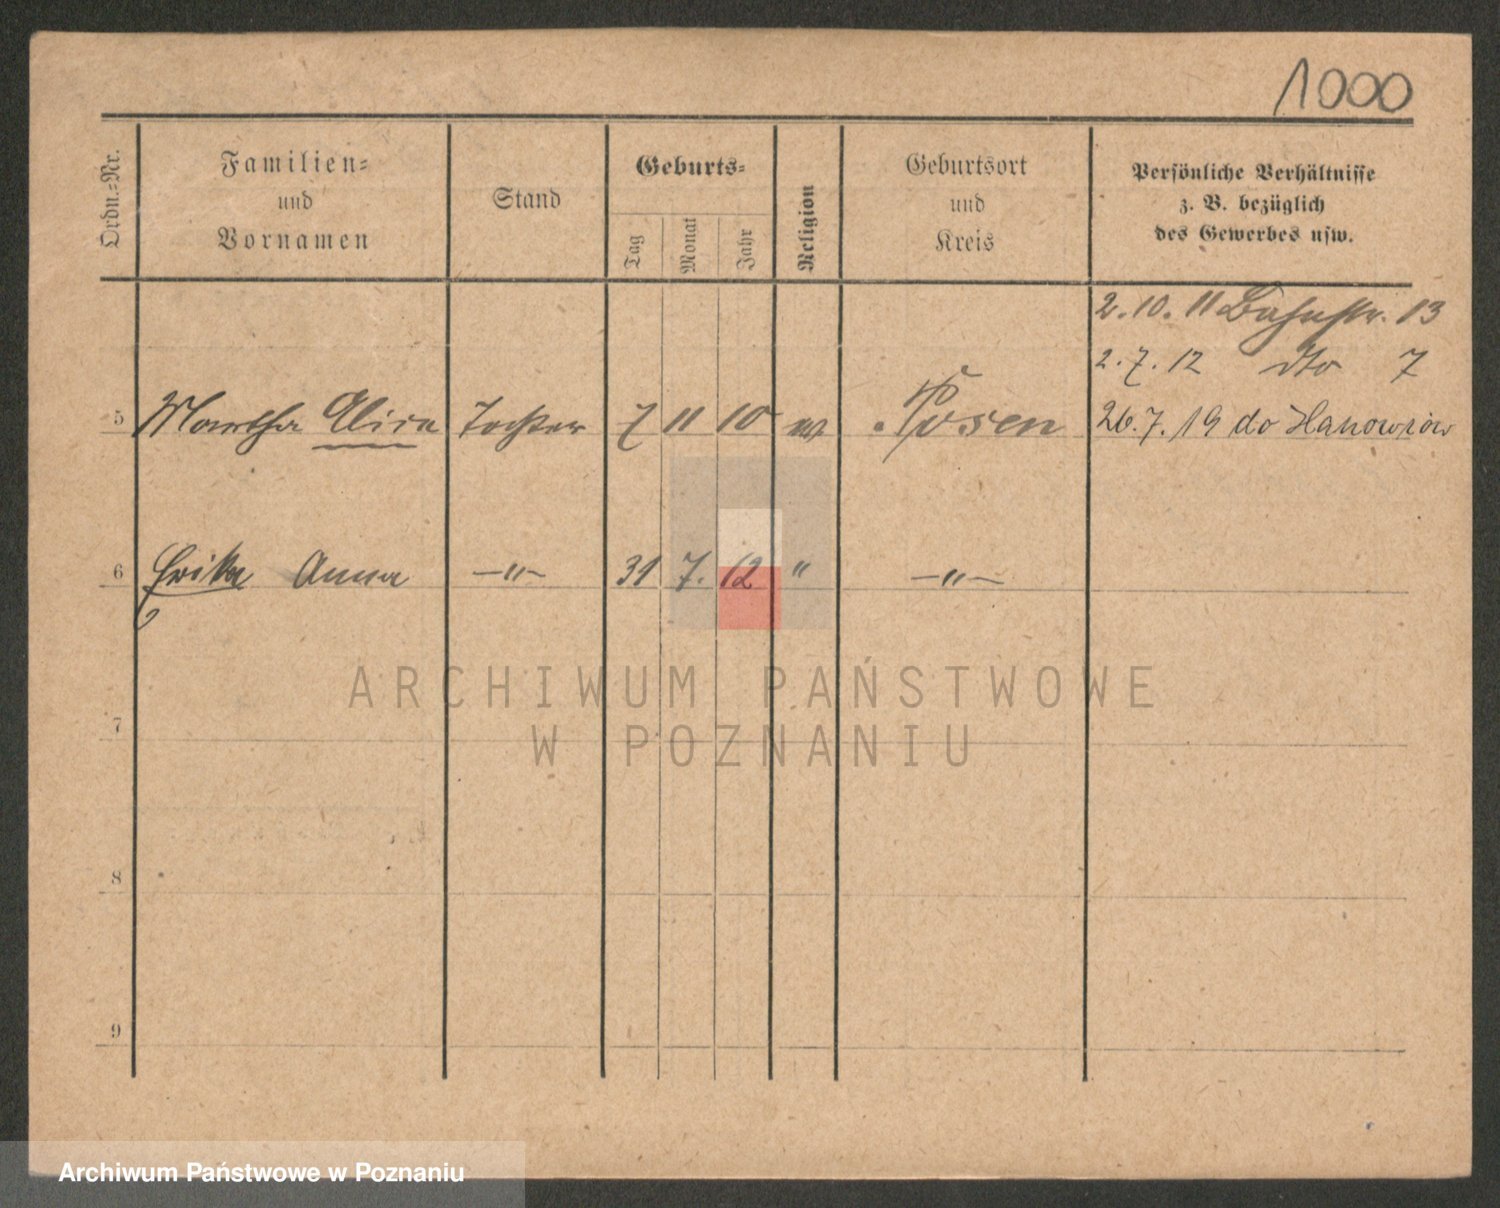 1000
Ordn.-Nr.
Familien-
und
Vornamen
Stand
Geburts-
Tag
Monat
Jahr
Religion
Geburtsort
und
Kreis
Persönliche Verhältnisse
z. B. bezüglich
des Gewerbes usw.
2.10.11 Bahnstr. 13
2.7.12 dto 7
5 Martha Tochter 7 11 10 Posen 26.7.19 do
6 Erika Anna —"— 31 7. 12 " —"—
ARCHIWUM PAŃSTWOWE
W POZNANIU
7
8
9
Archiwum Państwowe w Poznaniu